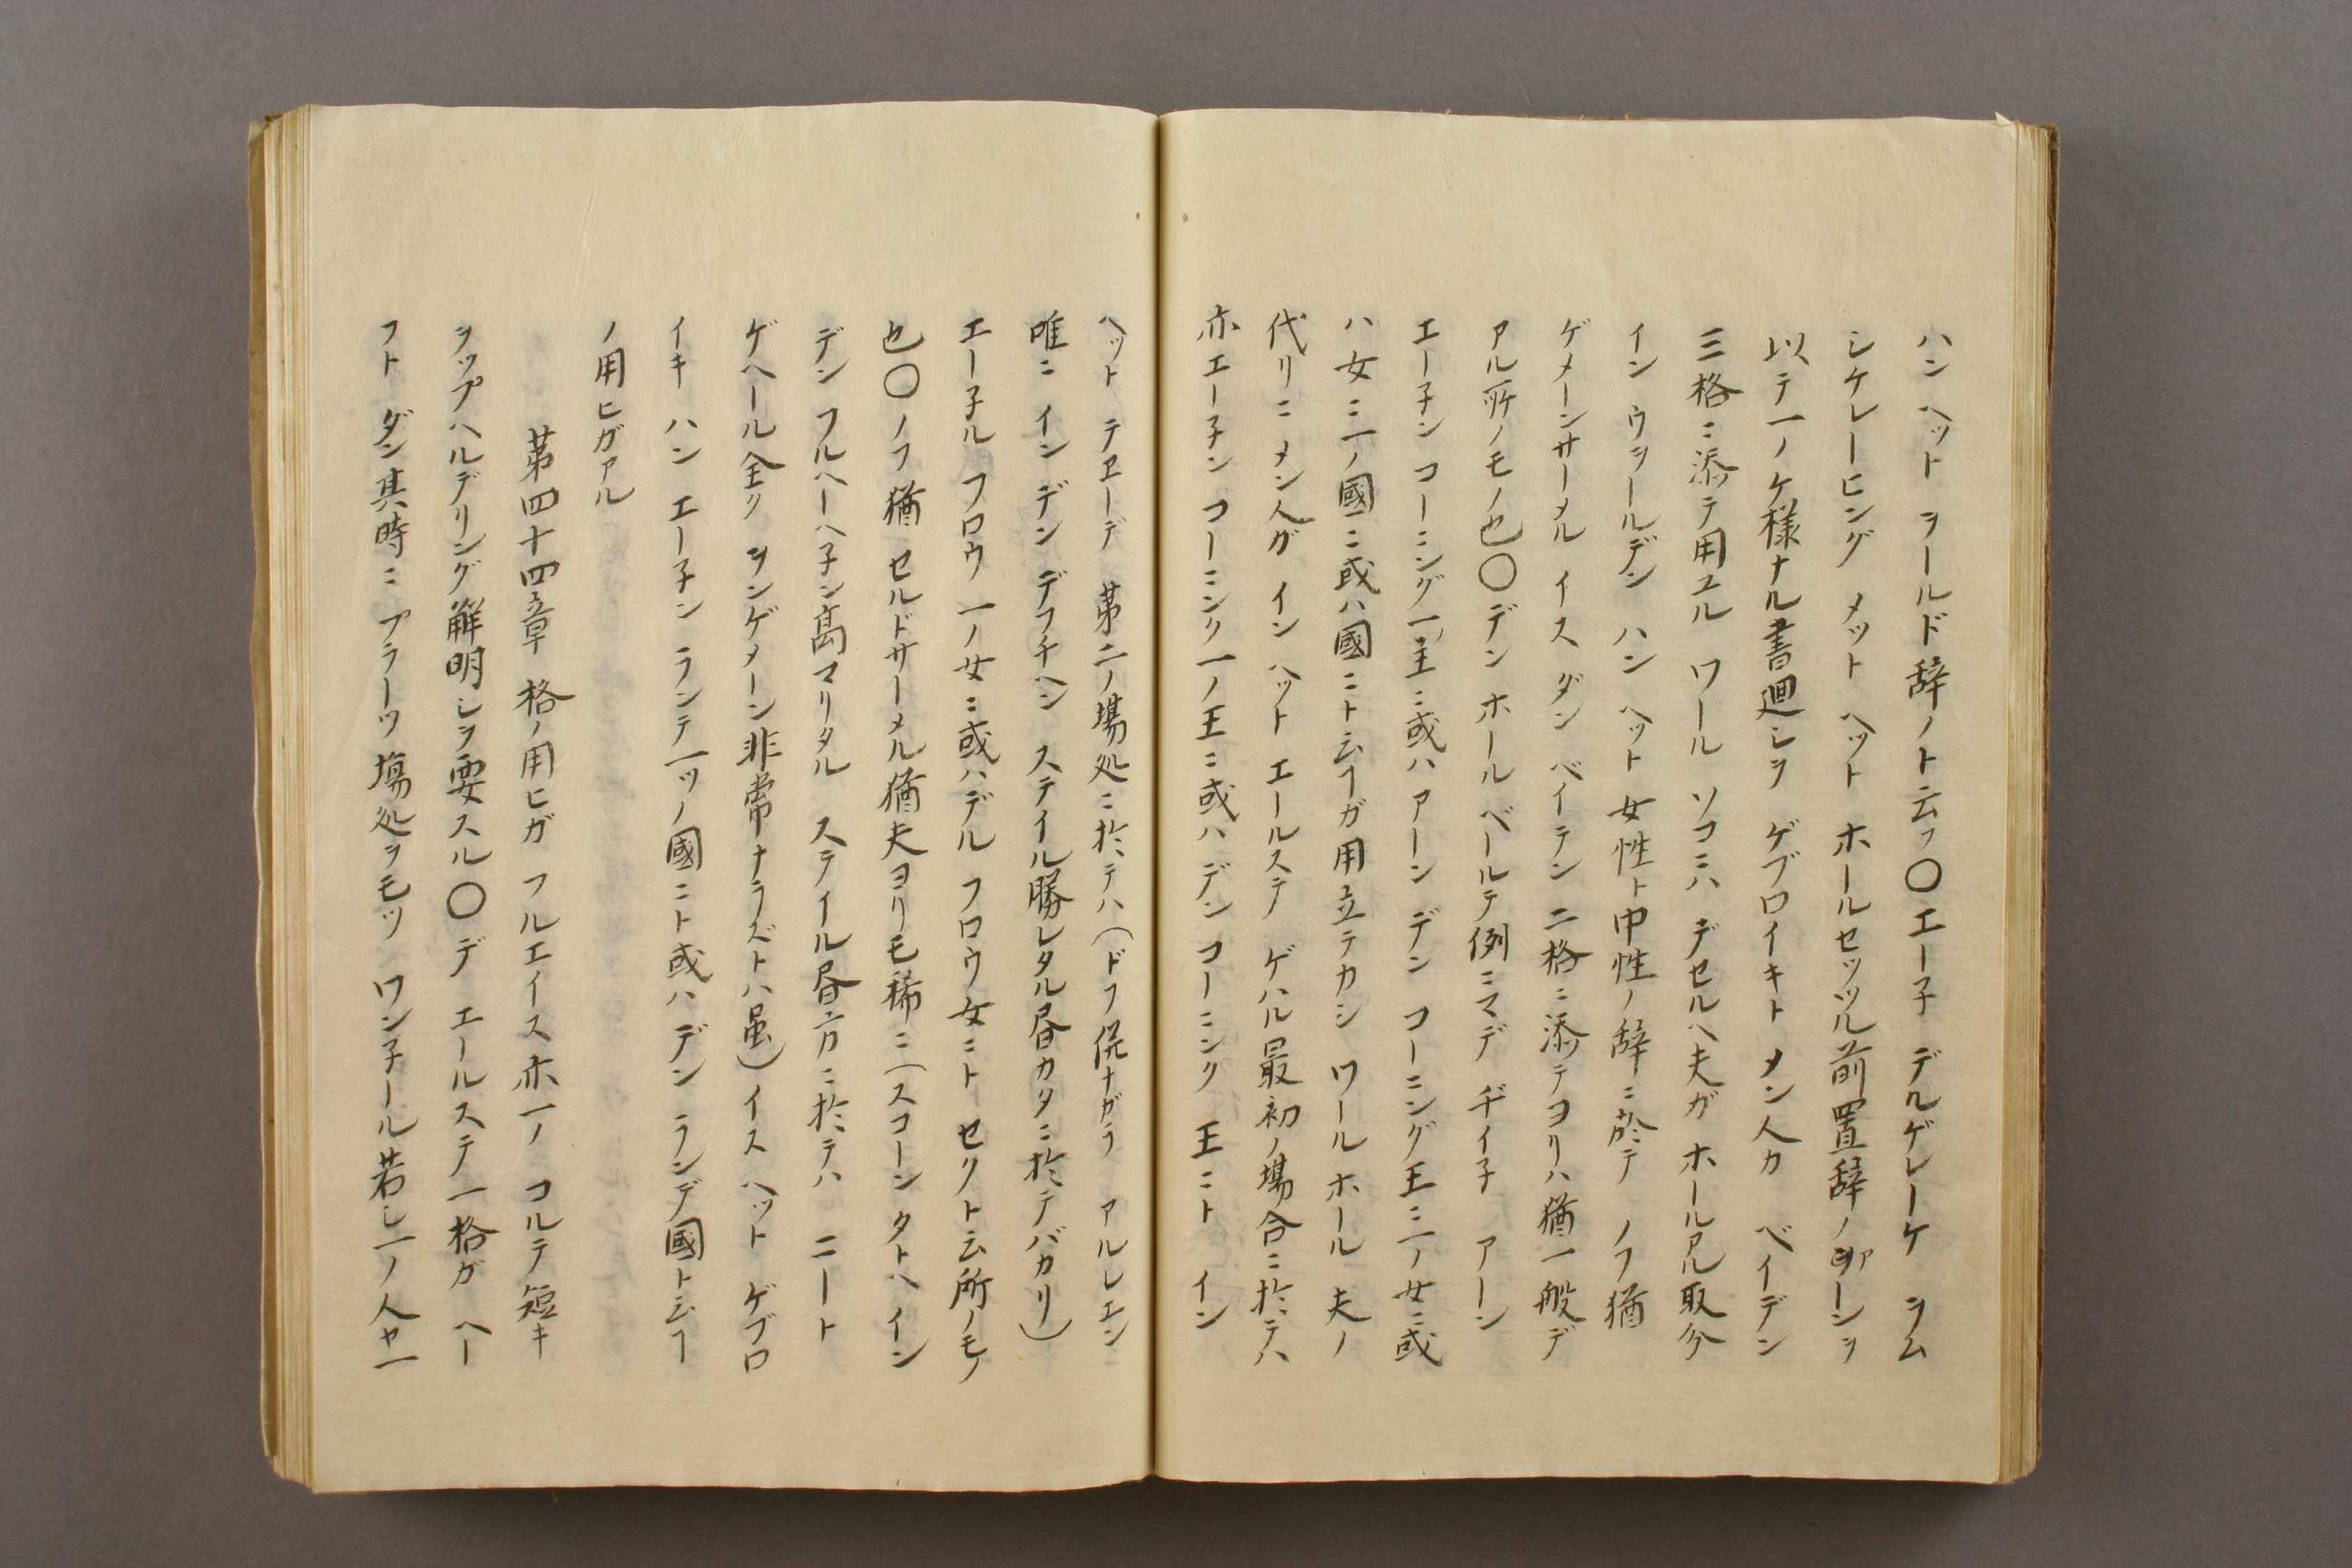 ハン ヘット ヲールド辞ノト云フ〇エー子 デルゲレーケ ヲム
シケレーヒング メット ヘット ホールセッツル前置辞ノアーンヲ
以テ一ノケ様ナル書廻シヲ ゲブロイキト メン人カ ベイデン
三格ニ添テ用ユル ワール ソコニハ デセルヘ夫ガ ホールアル取分
イン ウヲールデン ハン ヘット 女性ト中性ノ辞ニ於テ ノフ猶
ゲメーンサーメル イス ダン ベイテン 二格ニ添テヨリハ猶一般デ
アル所ノモノ也〇デン ホール ベールテ例ニマデ ヂイ子 アーン
エー子ン コーニング一ノ王ニ或ハ アーン デン コーニング王ニ一ノ女ニ或
ハ女ニ一ノ國ニ或ハ國ニト云フガ用立テカシ ワール ホール 夫ノ
代リニ メン人ガ イン ヘット エールステ ゲハル最初ノ場合ニ於テハ
亦エー子ン コーニンク一ノ王ニ或ハ デン コーニンク 王ニト イン
ヘット テヱーデ 第二ノ場処ニ於テハ(ドフ併ナガラ アルレエン
唯ニ イン デン デフチヘン ステイル勝レタル昼カタニ於テバカリ)
エー子ル フロウ 一ノ女ニ或ハデル フロウ女ニト セクト云所ノモノ
也〇ノフ猶 セルドサーメル猶夫ヨリモ稀ニ(スコーン タトヘ イン
デン フルヘーヘ子ン高マリタル ステイル昼方ニ於テハ ニート
ゲヘール全ク ヲンゲメーン非常ナラズトハ虽)イス ヘット ゲブロ
イキ ハン エー子ン ランテ一ツノ國ニト或ハ デン ランデ國ト云フ
ノ用ヒガアル
第四十四章 格ノ用ヒガ フルエイス亦一ノ コルテ短キ
ヲップヘルデリング解明シヲ要スル〇デ エールステ一格ガ ヘー
フト ダン其時ニ プラーツ場処ヲモツ ワン子ール若シ一ノ人ヤ一